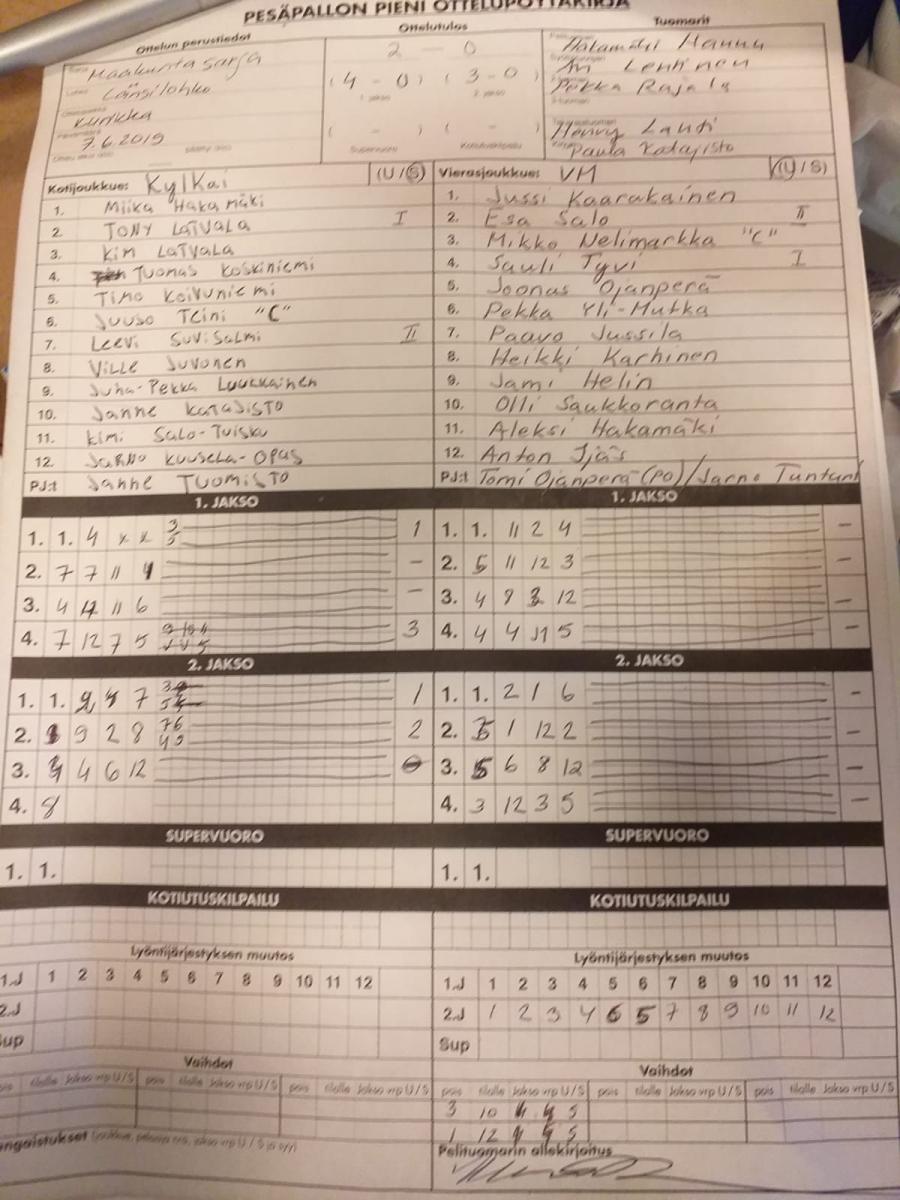 PESÄPALLON PIENI OTTELUPÖYTÄKIRJA
Ottelun perustiedot
Ottelutulos
Tuomarit
Maakuntasarja
Länsilohko
Kurikka
7.6.2019
2 - 0
(4 - 0) (3 - 0)
1. jakso 2. jakso
( - ) ( - )
Supervuoro Kotiutuskilpailu
Hakamäki Hannu
Ari Lehtinen
Pekka Rajala
Henry Lahti
Paula Katajisto
Kotijoukkue: KylKai (U/S)
1. Miika Hakamäki
2. TONY LATVALA I
3. Kim LATVALA
4. Tuomas Koskiniemi
5. Timo Koivuniemi
6. Juuso Teini "C"
7. Leevi Suvisalmi II
8. Ville Juvonen
9. Juha-Pekka Luukkainen
10. Janne Katajisto
11. Kimi Salo-Tuisku
12. Jarno Kuusela-Opas
PJ:t Janne Tuomisto
Vierasjoukkue: VM (U/S)
1. Jussi Kaarakainen
2. Esa Salo II
3. Mikko Nelimarkka "C"
4. Sauli Tyvi I
5. Joonas Ojanperä
6. Pekka Yli-Hutka
7. Paavo Jussila
8. Heikki Karhinen
9. Jami Helin
10. Olli Saukkoranta
11. Aleksi Hakamäki
12. Anton Ijäs
PJ:t Tomi Ojanperä (PO)/Jarno Tuntur
1. JAKSO
1. 1. 4 x x 3 5 1
2. 7 7 11 4 -
3. 4 4 11 6 -
4. 7 12 7 5 3
1. JAKSO
1. 1. 11 2 4 -
2. 5 11 12 3 -
3. 4 9 3 12 -
4. 4 4 11 5 -
2. JAKSO
1. 1. 7 1
2. 9 2 8 76 49 2
3. 4 6 12
4. 8
2. JAKSO
1. 1. 2 1 6 -
2. 1 12 2 -
3. 5 6 8 12 -
4. 3 12 3 5 -
SUPERVUORO
1. 1.
SUPERVUORO
1. 1.
KOTIUTUSKILPAILU
KOTIUTUSKILPAILU
Lyöntijärjestyksen muutos
1.J 1 2 3 4 5 6 7 8 9 10 11 12
2.J
Sup
Lyöntijärjestyksen muutos
1.J 1 2 3 4 5 6 7 8 9 10 11 12
2.J 1 2 3 4 6 5 7 8 9 10 11 12
Sup
Vaihdot
pois tilalle Jakso vrp U/S pois tilalle Jakso vrp U/S pois tilalle Jakso vrp U/S
Vaihdot
pois tilalle Jakso vrp U/S pois tilalle Jakso vrp U/S pois tilalle Jakso vrp U/S
3 10 4 S
1 12 S
Pelituomarin allekirjoitus